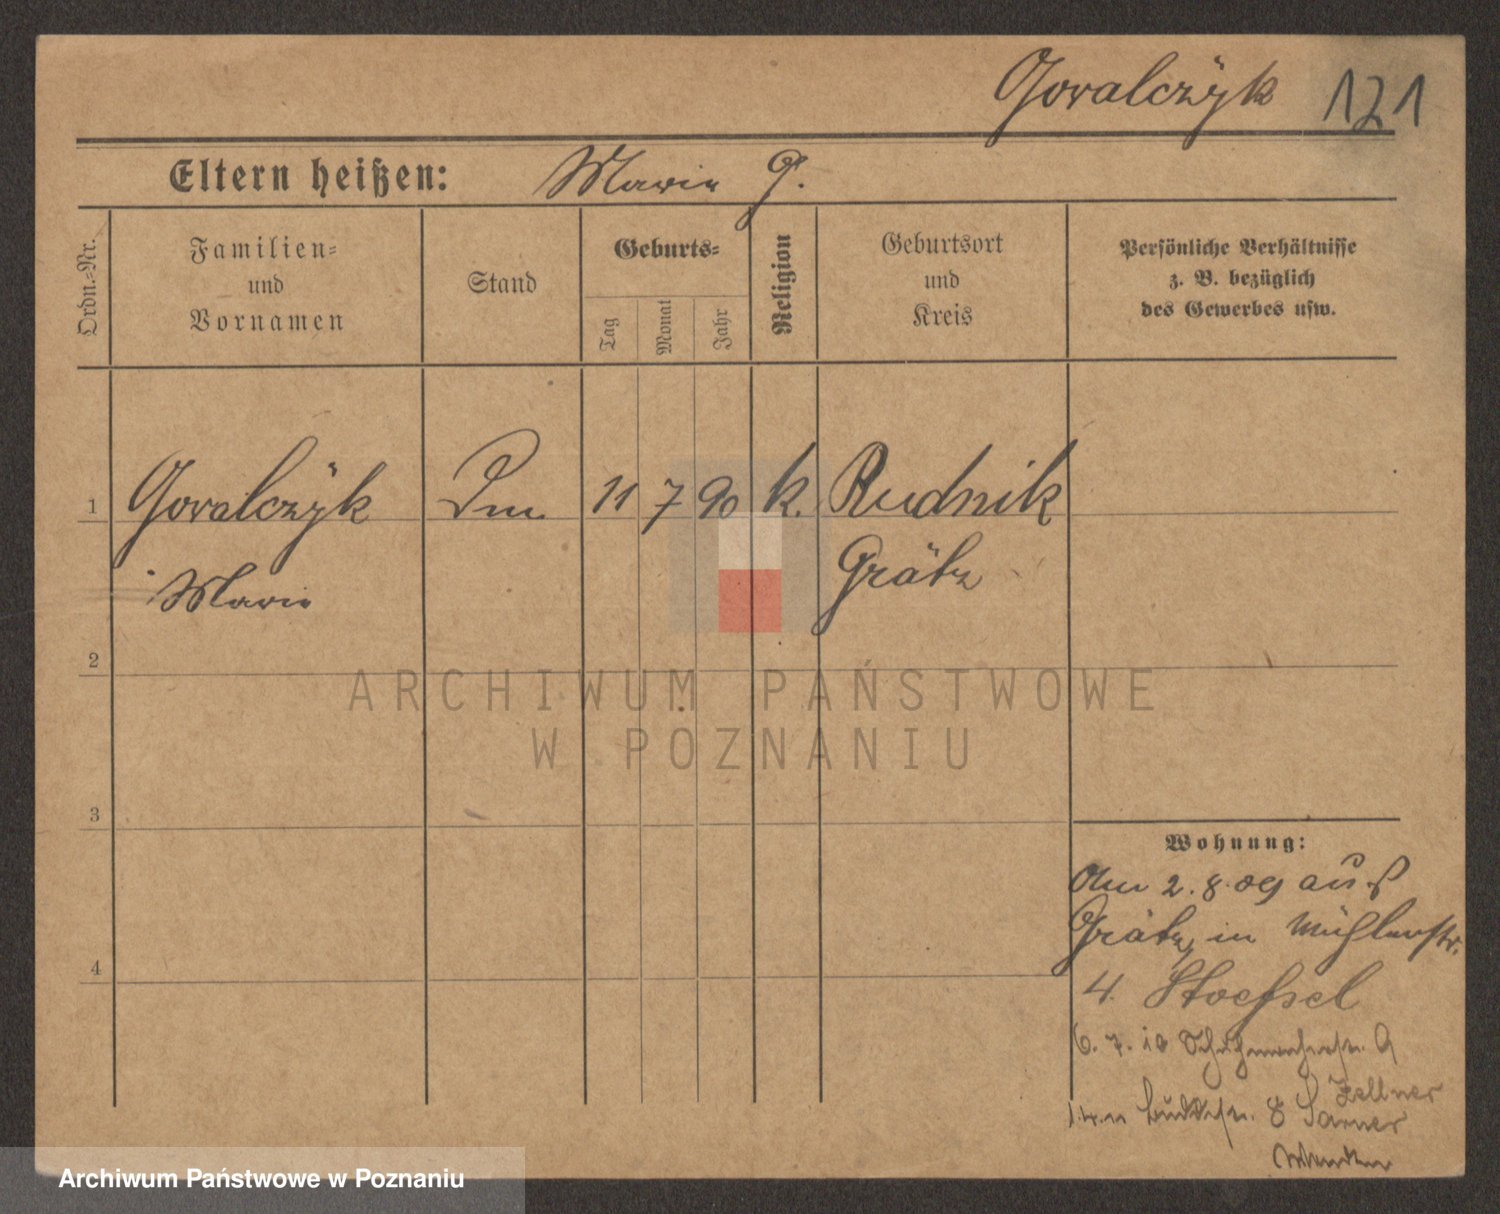 Govalczÿk 121
Eltern heißen: Marie G.
Ordn.=Nr.
Familien=
und
Vornamen
Stand
Geburts=
Tag
Monat
Jahr
Religion
Geburtsort
und
Kreis
Persönliche Verhältnisse
z. B. bezüglich
des Gewerbes usw.
1 Govalczÿk 11 7 90 k. Rudnik
Marie Grätz
2
ARCHIWUM PAŃSTWOWE
W POZNANIU
3
Wohnung:
Am 2. 8. 09 aus
Grätz in Mühlenstr.
4
4. Stoessel
6. 7. 10 9
Zellner
8 Sarner
Archiwum Państwowe w Poznaniu